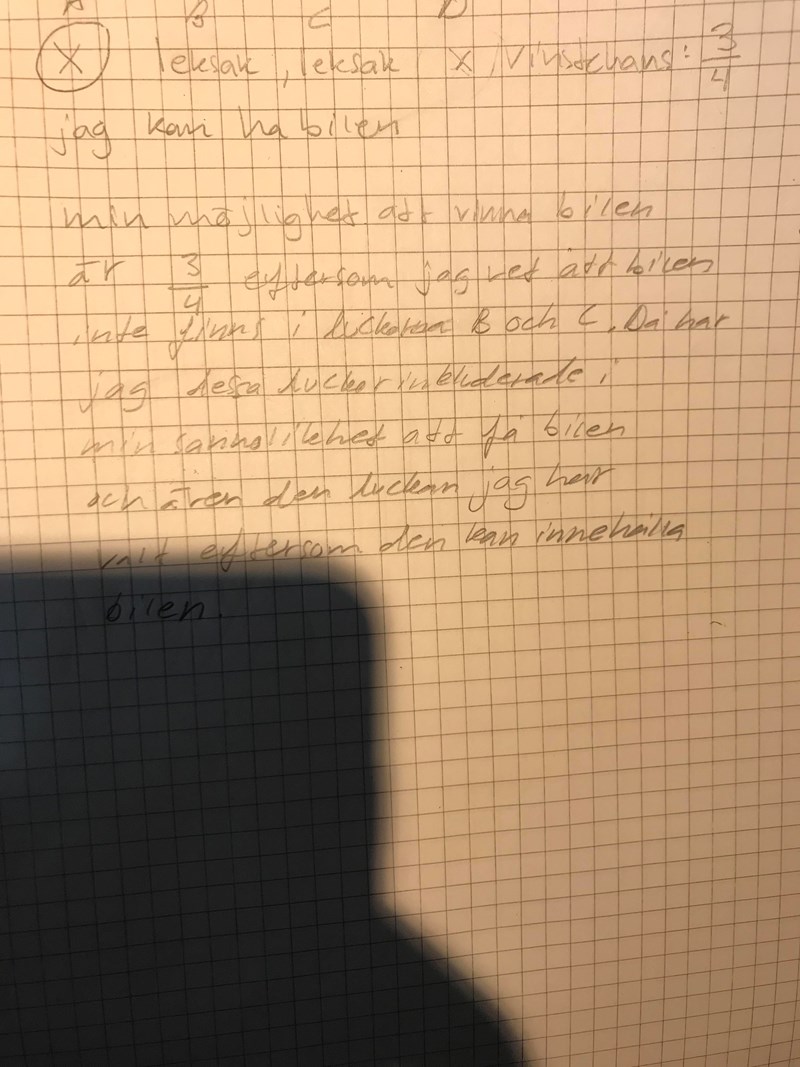 A B C D
X leksak, leksak X Vinstchans: 3/4
jag kan ha bilen
min möjlighet att vinna bilen
är 3/4 eftersom jag vet att bilen
inte finns i luckorna B och C. Då har
jag dessa luckor inkluderade i
min sannolikhet att få bilen
och även den luckan jag har
valt eftersom den kan innehålla
bilen.